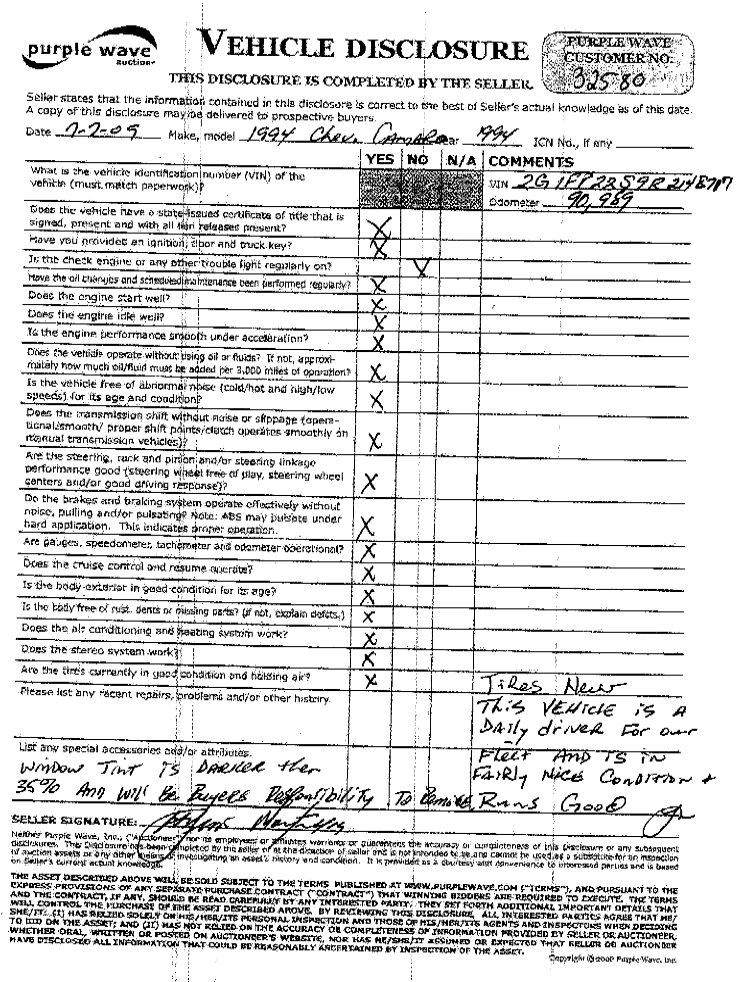 purple wave
auction
VEHICLE DISCLOSURE
PURPLE WAVE
CUSTOMER NO.
32580
THIS DISCLOSURE IS COMPLETED BY THE SELLER.
Seller states that the information contained in this disclosure is correct to the best of Seller's actual knowledge as of this date.
A copy of this disclosure may be delivered to prospective buyers.
Date 7-7-09 Make, model 1994 Chev. CAMARO ar 1994 ICN No., if any
YES NO N/A COMMENTS
What is the vehicle identification number (VIN) of the
vehicle (must match paperwork)?
VIN 2G1FP22S9R2148707
Odometer 90,959
Does the vehicle have a state-issued certificate of title that is
signed, present and with all lien releases present? X
Have you provided an ignition, door and truck key? X
Is the check engine or any other trouble light regularly on? X
Have the oil changes and scheduled maintenance been performed regularly? X
Does the engine start well? X
Does the engine idle well? X
Is the engine performance smooth under acceleration? X
Does the vehicle operate without using oil or fluids? If not, approxi-
mately how much oil/fluid must be added per 3,000 miles of operation? X
Is the vehicle free of abnormal noise (cold/hot and high/low
speeds) for its age and condition? X
Does the transmission shift without noise or slippage (opera-
tional/smooth/ proper shift points/clutch operates smoothly on
manual transmission vehicles)? X
Are the steering, rack and pinion and/or steering linkage
performance good (steering wheel free of play, steering wheel
centers and/or good driving response)? X
Do the brakes and braking system operate effectively without
noise, pulling and/or pulsating? Note: ABS may pulsate under
hard application. This indicates proper operation. X
Are gauges, speedometer, tachometer and odometer operational? X
Does the cruise control and resume operate? X
Is the body exterior in good condition for its age? X
Is the body free of rust, dents or missing parts? (if not, explain defects.) X
Does the air conditioning and heating system work? X
Does the stereo system work? X
Are the tires currently in good condition and holding air? X
Tires New
Please list any recent repairs, problems and/or other history.
This VEHICLE is A
DAily driver For our
Fleet AND IS in
FAIRly NICE CONDITION +
Runs Good
List any special accessories and/or attributes.
WINDOW TINT IS DARKER then
35% And Will Be Buyers Responsibility To Remove
SELLER SIGNATURE:
Neither Purple Wave, Inc., ("Auctioneer") nor its employees or affiliates warrants or guarantees the accuracy or completeness of this Disclosure or any subsequent
disclosures. This Disclosure has been completed by the seller or at the direction of seller and is not intended to be and cannot be used as a substitute for an inspection
of auction assets or any other means of investigating an asset's history and condition. It is provided as a courtesy and convenience to interested parties and is based
on Seller's current actual knowledge.
THE ASSET DESCRIBED ABOVE WILL BE SOLD SUBJECT TO THE TERMS PUBLISHED AT WWW.PURPLEWAVE.COM ("TERMS"), AND PURSUANT TO THE
EXPRESS PROVISIONS OF ANY SEPARATE PURCHASE CONTRACT ("CONTRACT") THAT WINNING BIDDERS ARE REQUIRED TO EXECUTE. THE TERMS
AND THE CONTRACT, IF ANY, SHOULD BE READ CAREFULLY BY ANY INTERESTED PARTY. THEY SET FORTH ADDITIONAL IMPORTANT DETAILS THAT
WILL CONTROL THE PURCHASE OF THE ASSET DESCRIBED ABOVE. BY REVIEWING THIS DISCLOSURE, ALL INTERESTED PARTIES AGREE THAT HE/
SHE/IT: (I) HAS RELIED SOLELY ON HIS/HER/ITS PERSONAL INSPECTION AND THOSE OF HIS/HER/ITS AGENTS AND INSPECTORS WHEN DECIDING
TO BID ON THE ASSET; AND (II) HAS NOT RELIED ON THE ACCURACY OR COMPLETENESS OF INFORMATION PROVIDED BY SELLER OR AUCTIONEER,
WHETHER ORAL, WRITTEN OR POSTED ON AUCTIONEER'S WEBSITE, NOR HAS HE/SHE/IT ASSUMED OR EXPECTED THAT SELLER OR AUCTIONEER
HAVE DISCLOSED ALL INFORMATION THAT COULD BE REASONABLY ASCERTAINED BY INSPECTION OF THE ASSET.
Copyright ©2008 Purple Wave, Inc.